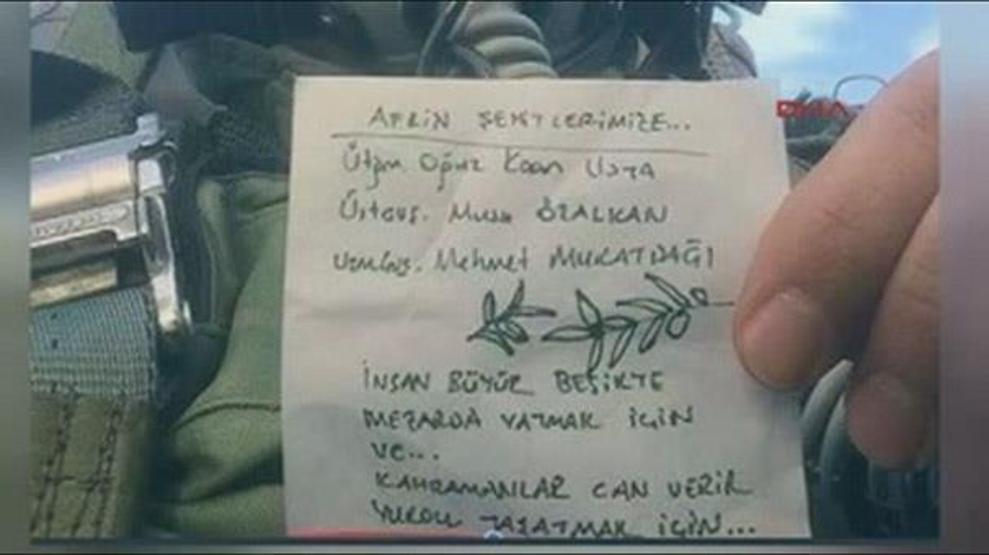 AFRİN ŞEHİTLERİMİZE...
Ütğm. Oğuz Kaan USTA
Üstçvş. Musa ÖZALKAN
Uzm.Çvş. Mehmet MURATDAĞI
İNSAN BÜYÜR BEŞİKTE
MEZARDA YATMAK İÇİN
VE...
KAHRAMANLAR CAN VERİR
YURDU YAŞATMAK İÇİN...
DHA